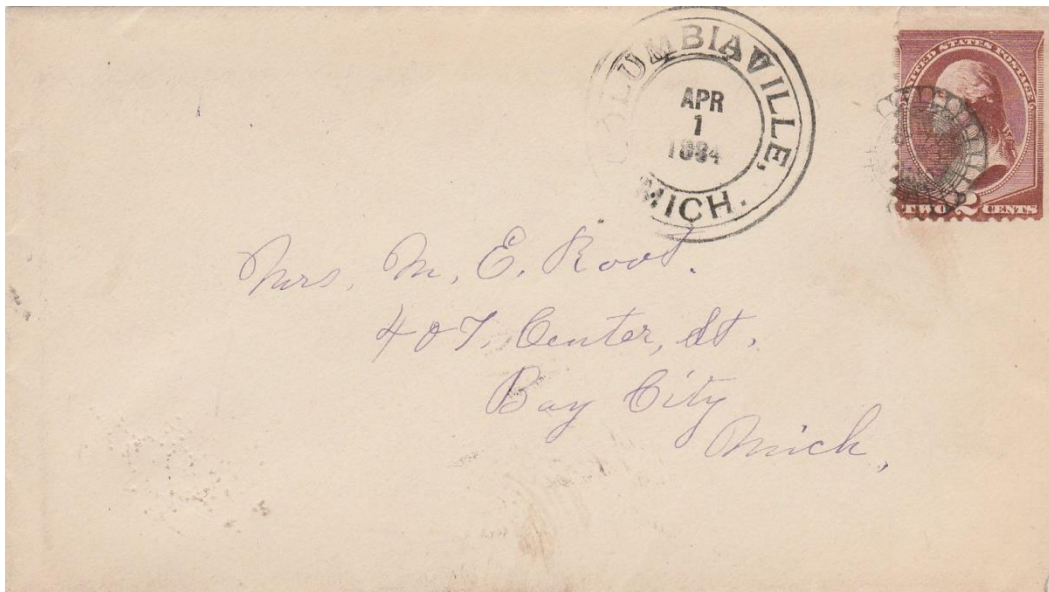 COLUMBIAVILLE,
APR
1
1884
MICH.
UNITED STATES POSTAGE
TWO 2 CENTS
Mrs. M. E. Root.
407 Center, St.
Bay City
Mich,